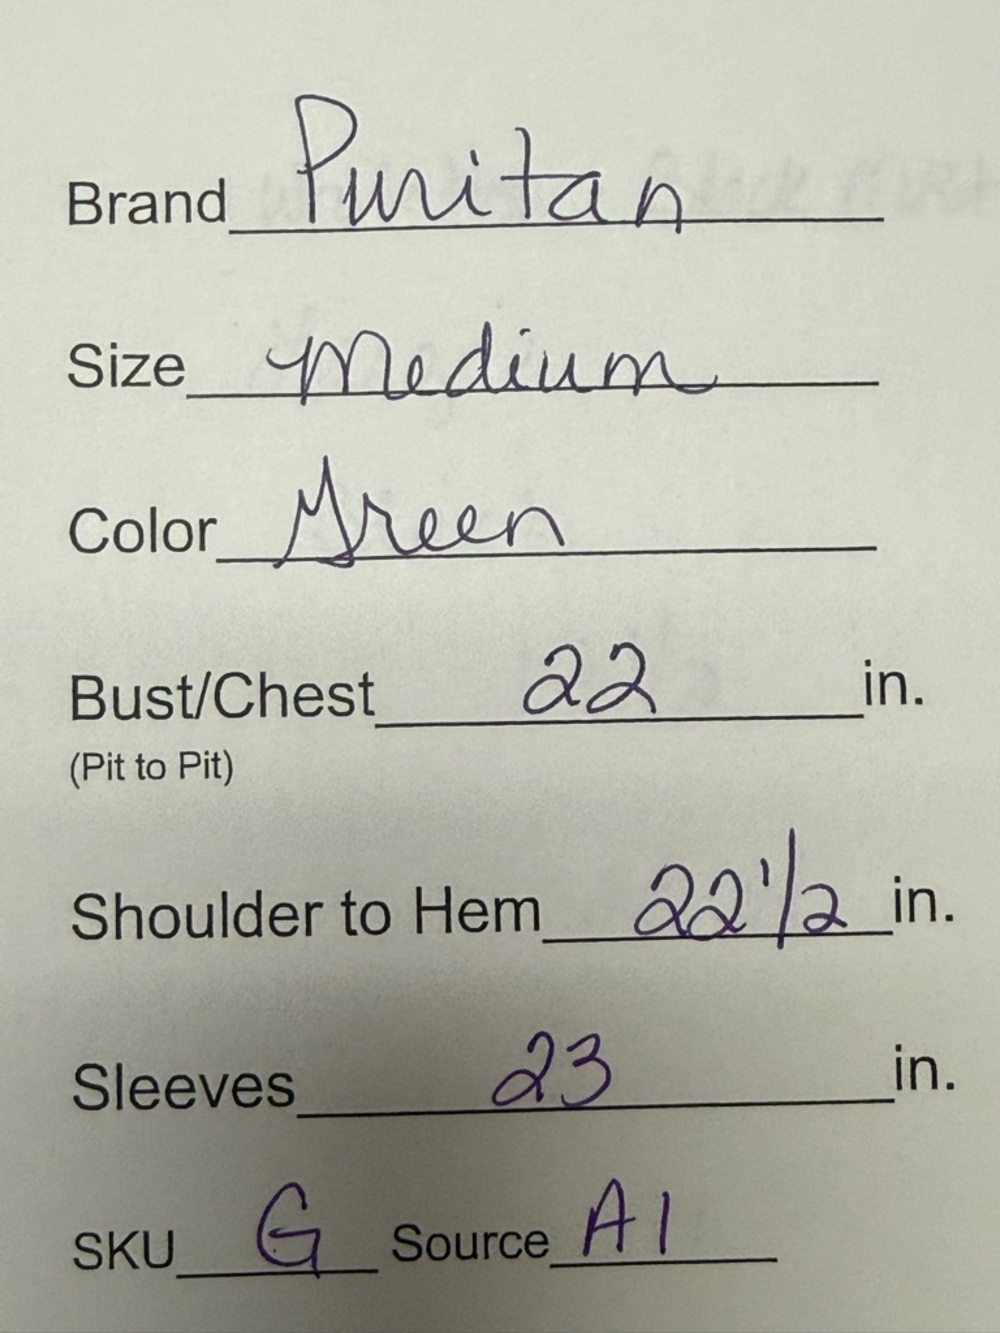 Brand Puritan
Size Medium
Color Green
Bust/Chest 22 in.
(Pit to Pit)
Shoulder to Hem 22 1/2 in.
Sleeves 23 in.
SKU G Source A1